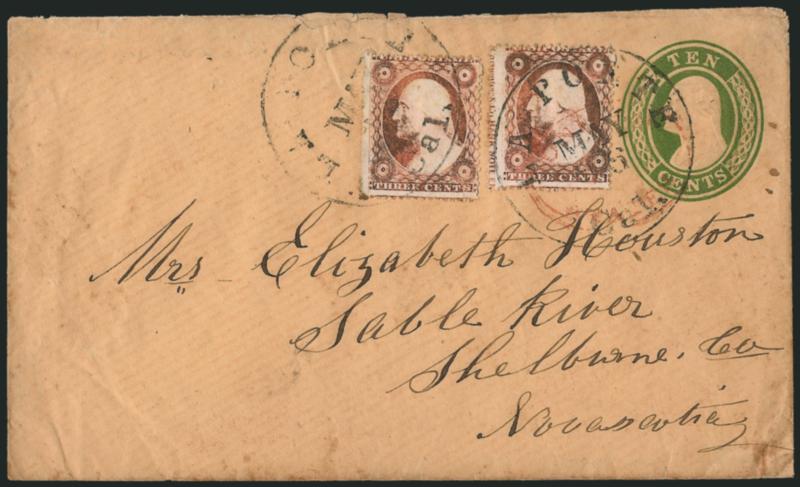 TEN
CENTS
THREE CENTS
THREE CENTS
MAY
Cal.
Mrs Elizabeth Houston
Sable River
Shelburne. Co
Novascotia